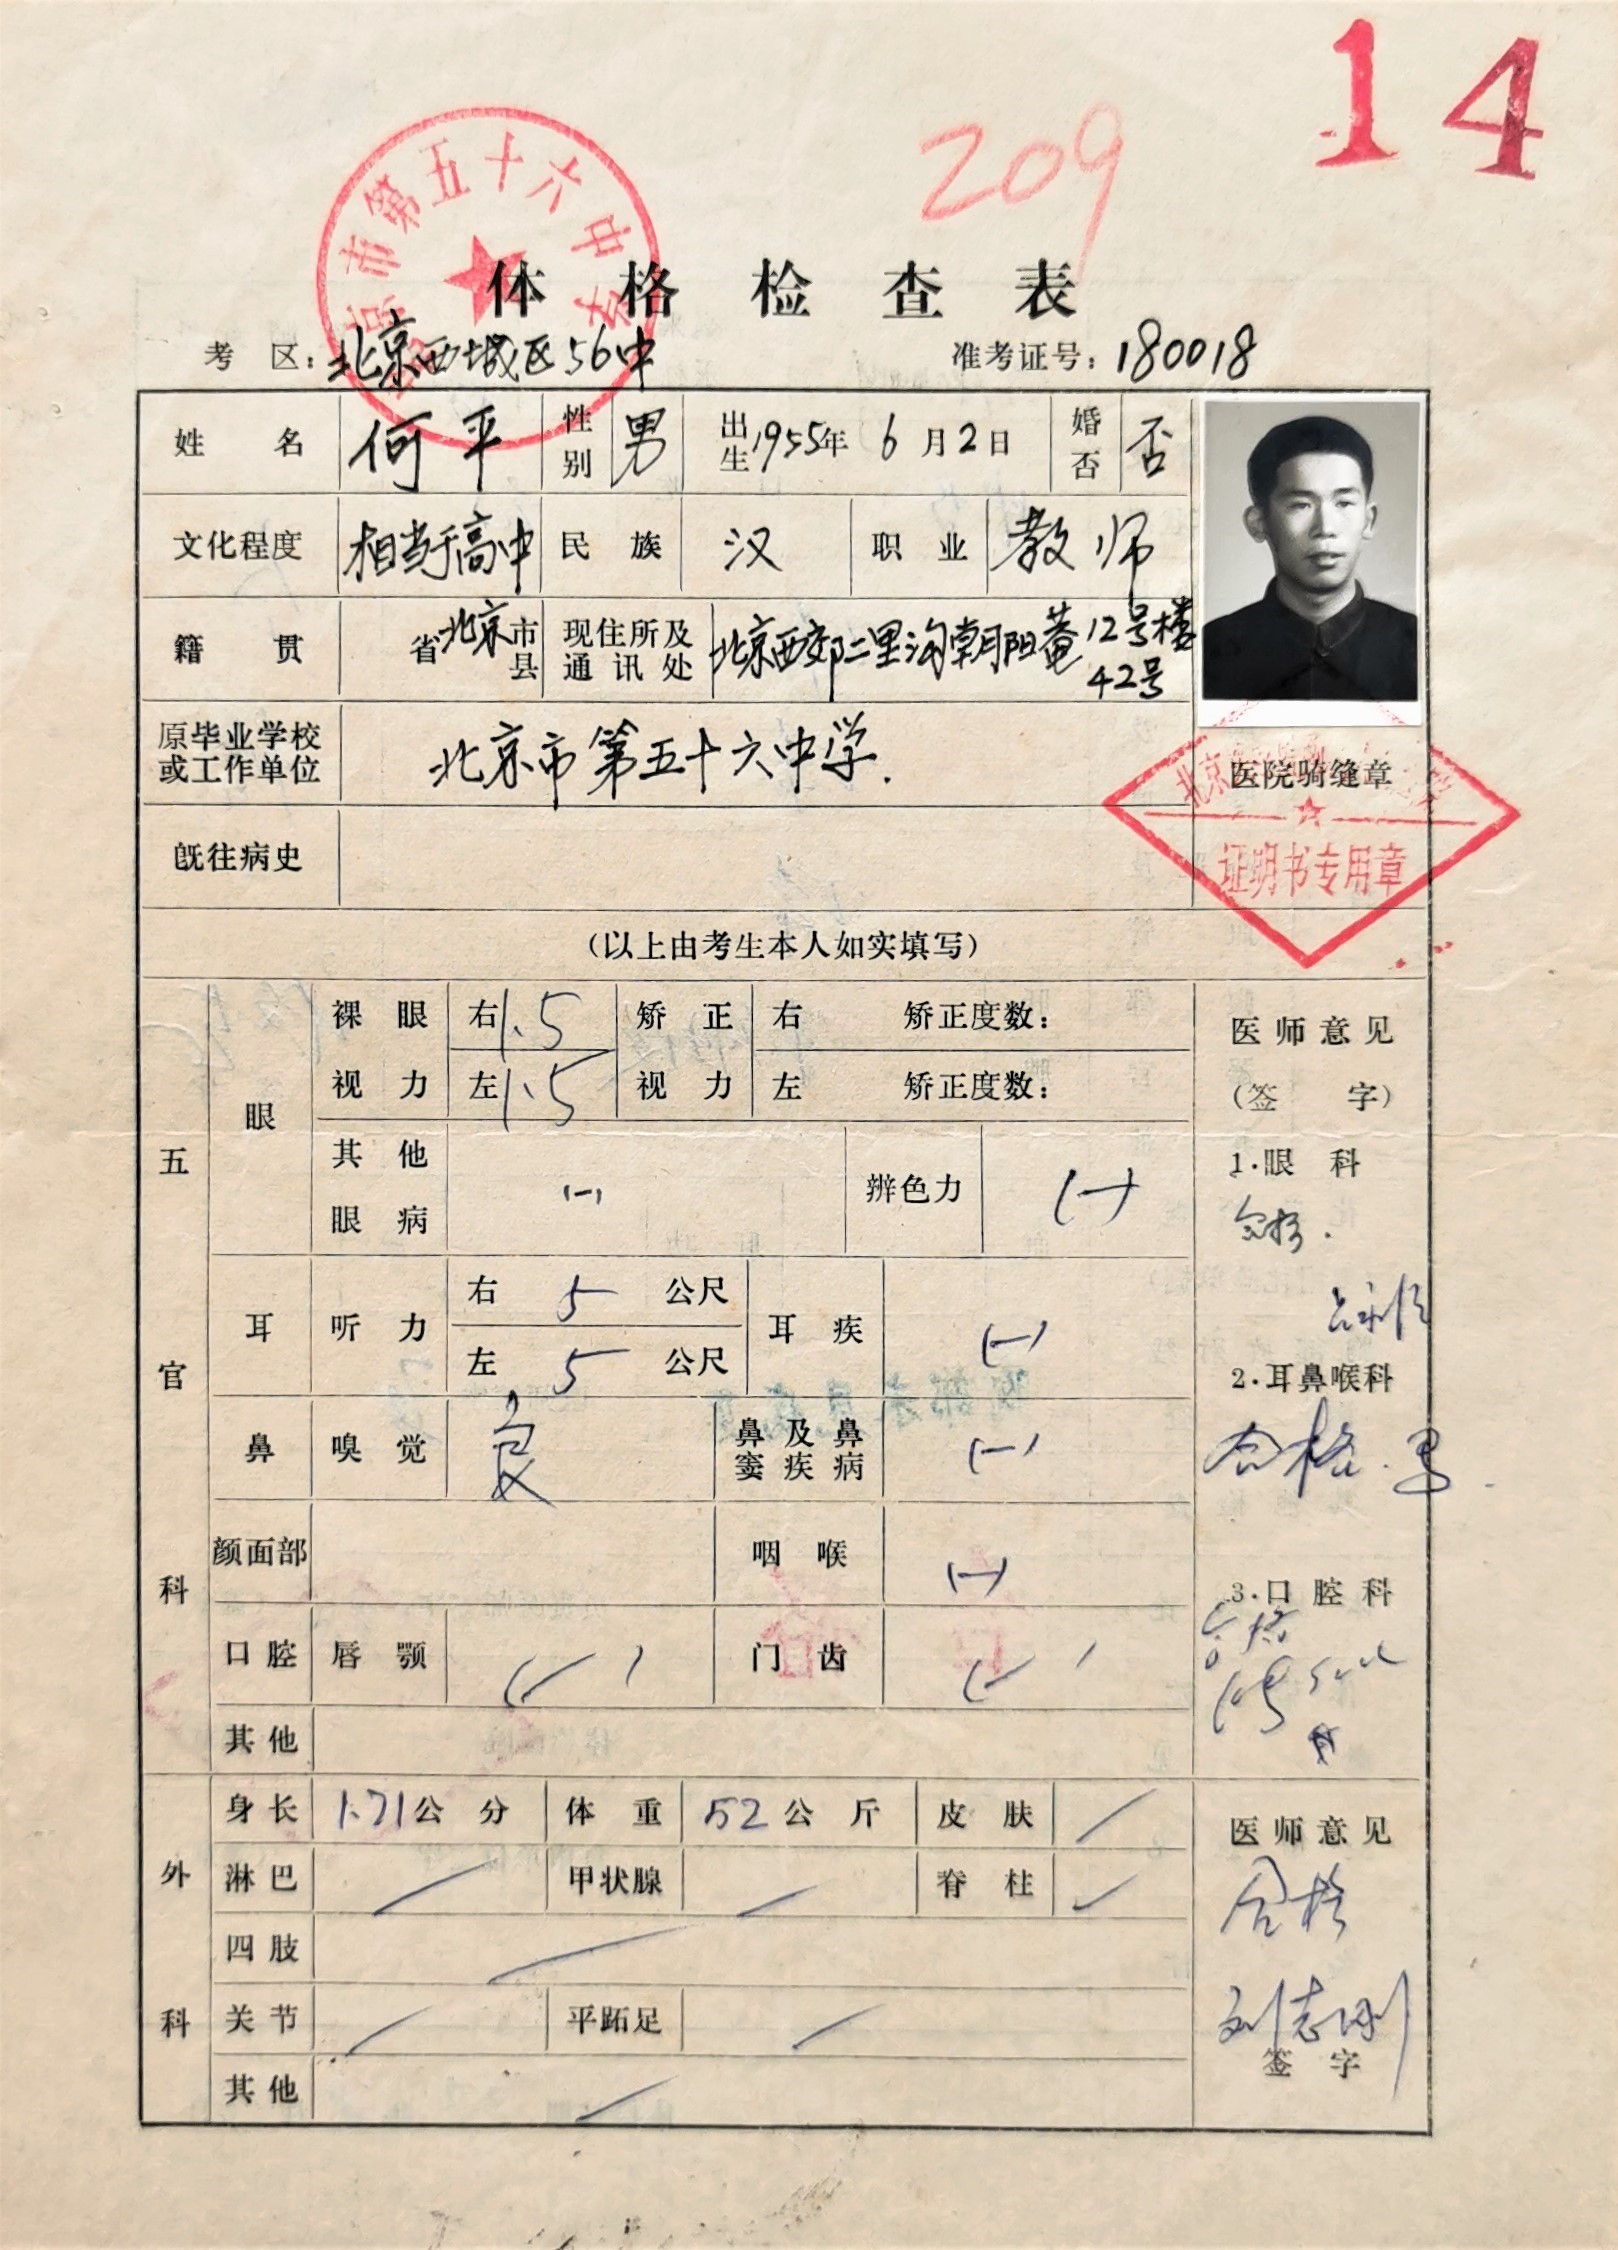 14
209
北京市第五十六中学
体格检查表
考区：北京西城区56中 准考证号：180018
姓名 何平 性别 男 出生 1955年6月2日 婚否 否
文化程度 相当于高中 民族 汉 职业 教师
籍贯 省北京市县 现住所及通讯处 北京西郊二里沟朝阳菴12号楼42号
原毕业学校或工作单位 北京市第五十六中学.
医院骑缝章
证明书专用章
既往病史
(以上由考生本人如实填写)
五官科
眼 裸眼视力 右 1.5 矫正视力 右 矫正度数：
左 1.5 左 矫正度数：
医师意见
(签字)
其他眼病 (一) 辨色力 (一)
1.眼科
合格.
耳 听力 右 5 公尺 耳疾 (一)
左 5 公尺
2.耳鼻喉科
合格.
鼻 嗅觉 良 鼻及鼻窦疾病 (一)
颜面部 咽喉 (一)
3.口腔科
合格
口腔 唇颚 (一) 门齿 (一)
其他
外科
身长 1.71公分 体重 52公斤 皮肤 /
医师意见
合格
淋巴 / 甲状腺 / 脊柱 /
四肢 /
关节 / 平跖足 /
刘志刚
签字
其他 /